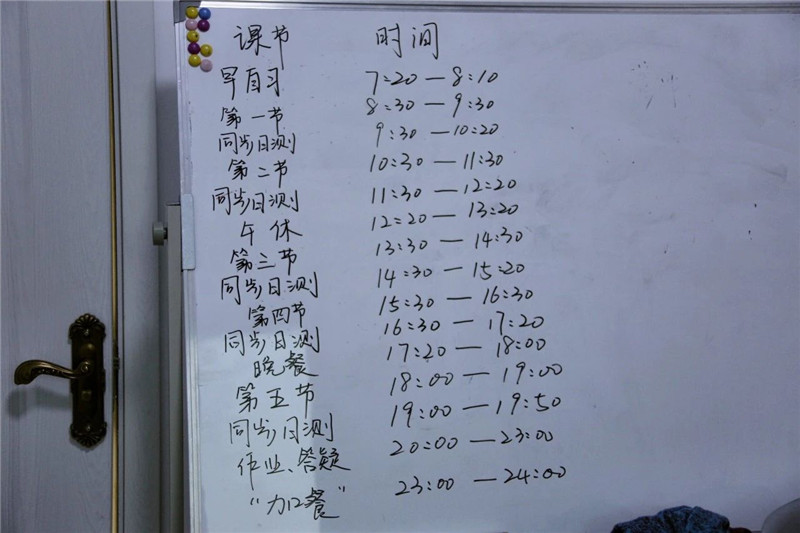 课节 时间
早自习 7:20—8:10
第一节 8:30—9:30
同步日测 9:30—10:20
第二节 10:30—11:30
同步日测 11:30—12:20
午休 12:20—13:20
第三节 13:30—14:30
同步日测 14:30—15:20
第四节 15:30—16:30
同步日测 16:30—17:20
晚餐 17:20—18:00
第五节 18:00—19:00
同步日测 19:00—19:50
作业、答疑 20:00—23:00
“加餐” 23:00—24:00